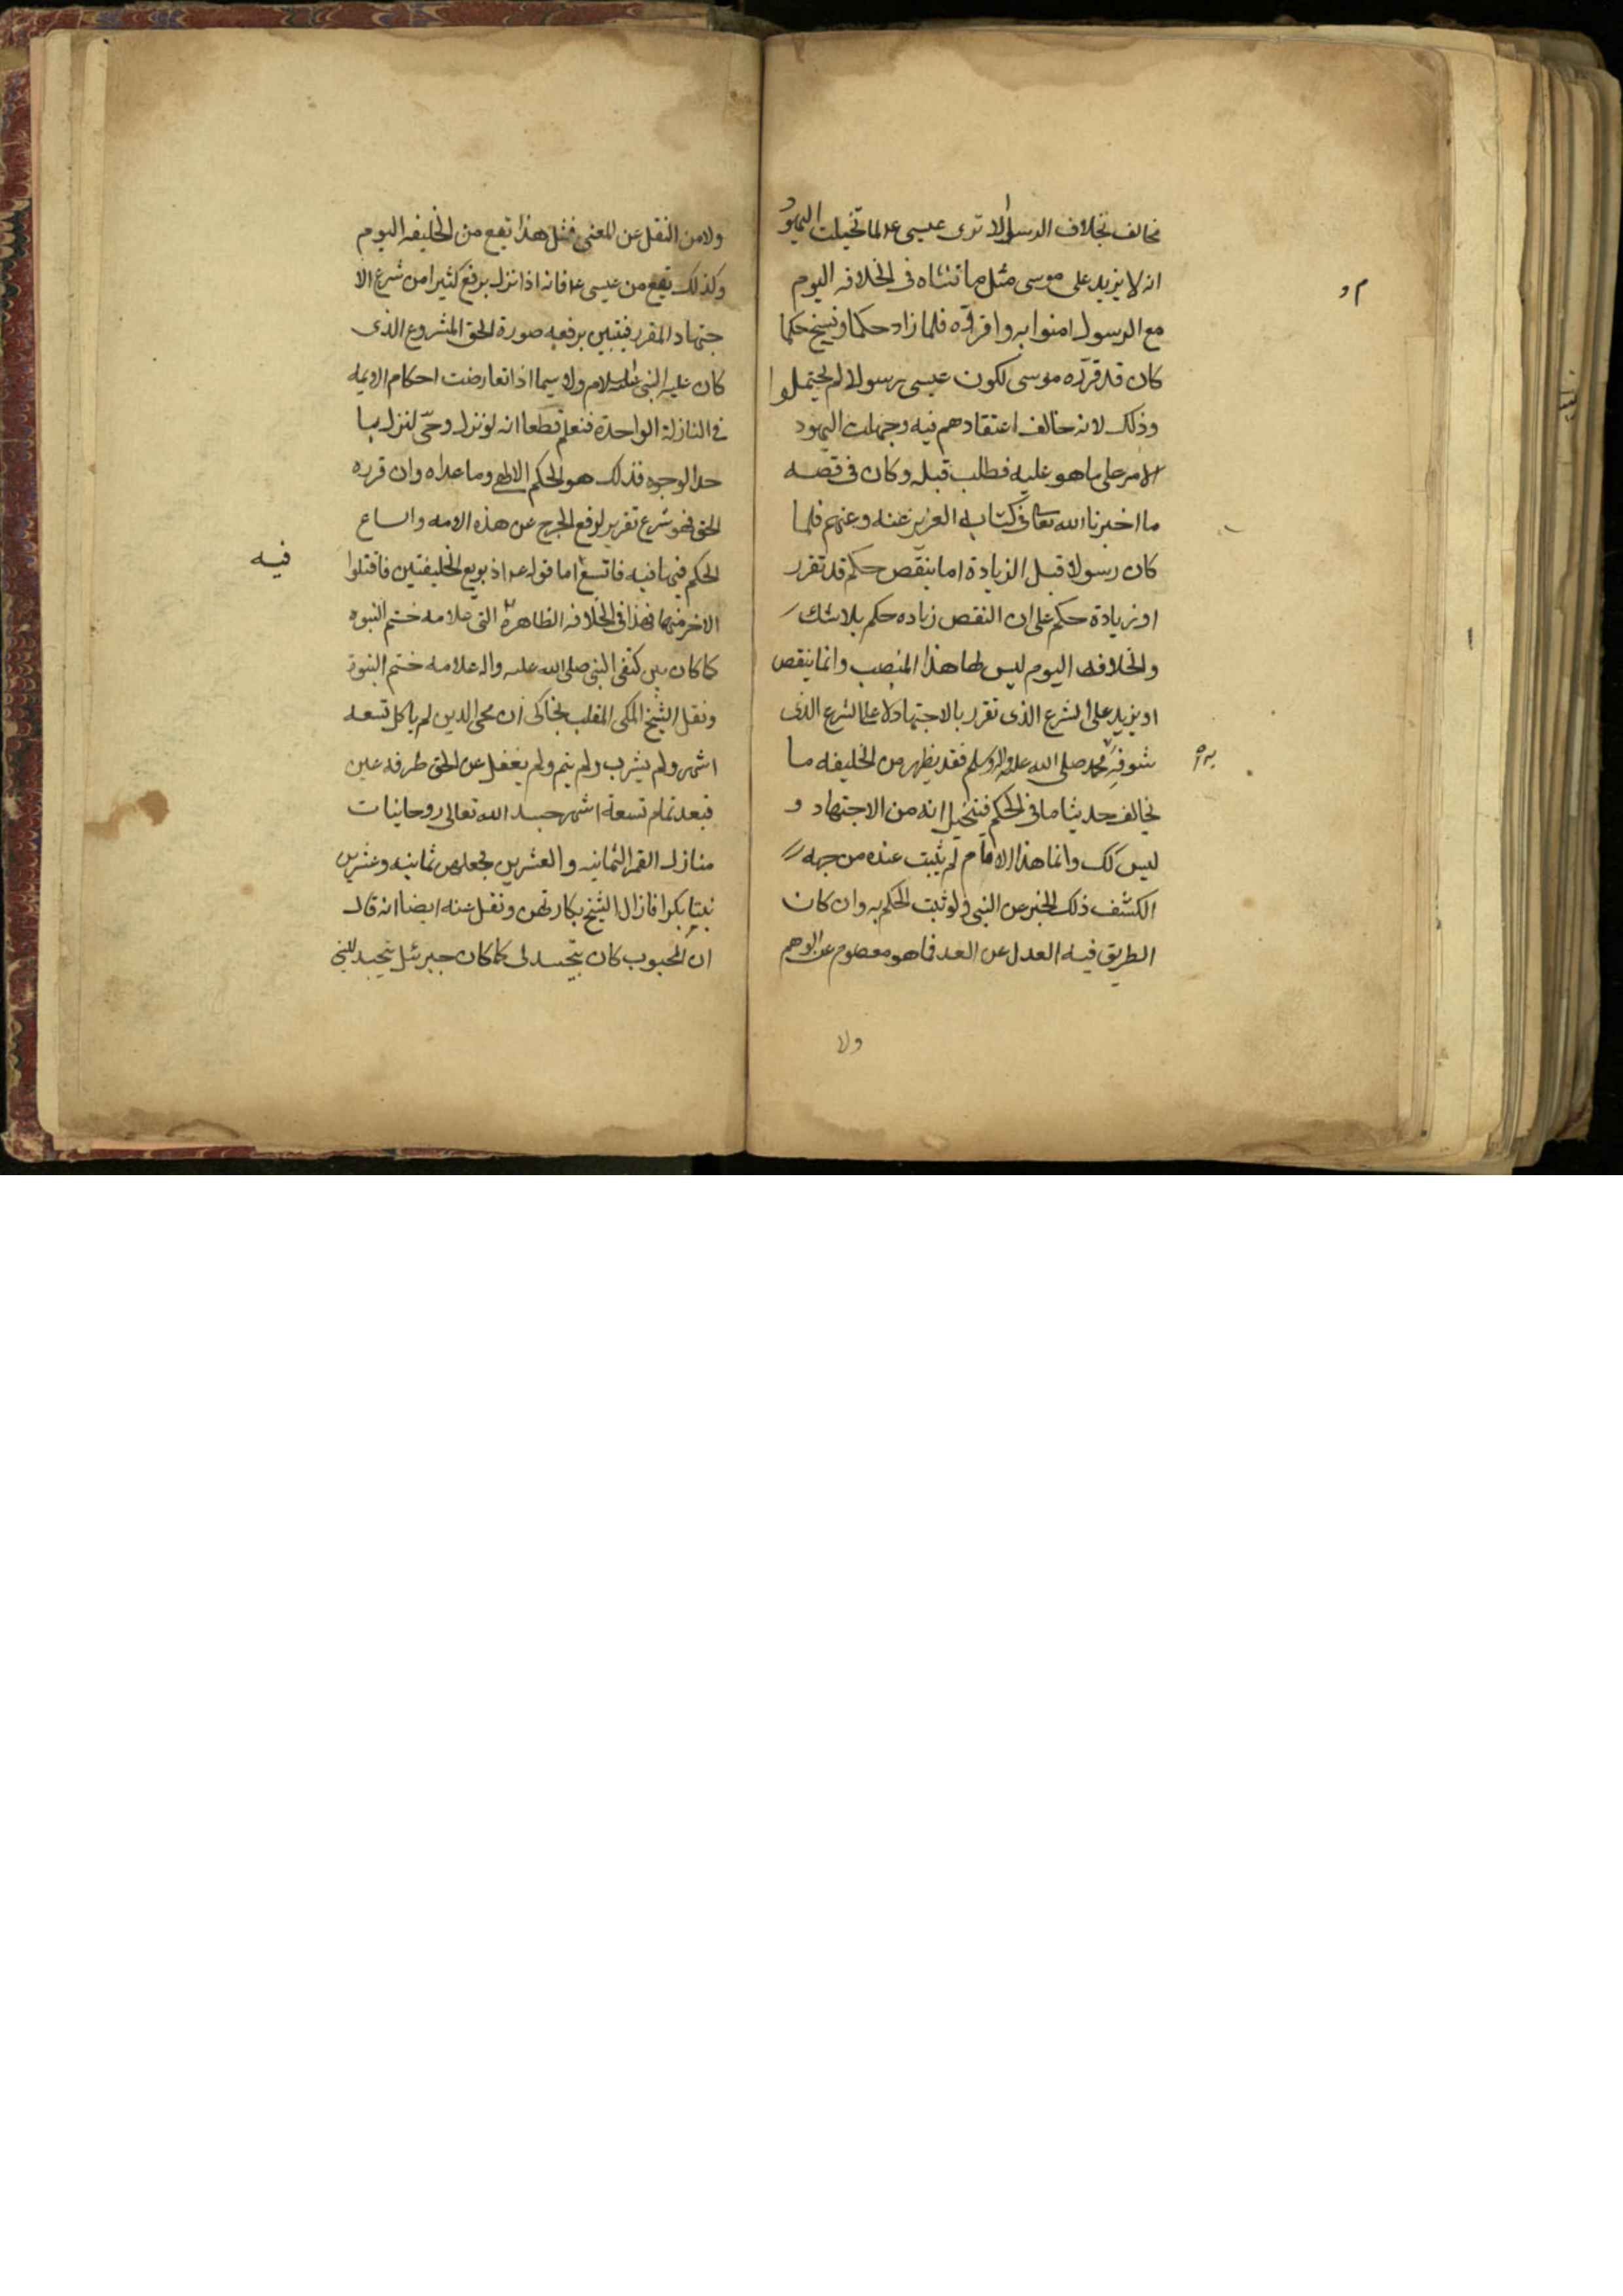 مخالف بخلاف الرسول الا ترى عيسى عم لما تخيلت اليهود
انه لا يزيد على موسى مثل ما قلناه فى الخلافه اليوم
مع الرسول امنوا به واقروه فلما زاد حكما ونسخ حكما
كان قد قرره موسى لكون عيسى رسولا لم يحتملوا
وذلك لانه خالف اعتقادهم فيه وجهلت اليهود
الامر على ما هو عليه فطلب قبله وكان فى قصه
ما اخبرنا الله تعالى فى كتابه العزيز عنه وعنهم فلما
كان رسولا قبل الزيادة اما بنقص حكم قد تقرر
او زيادة حكم على ان النقص زياده حكم بلا شك
والخلافه اليوم ليس لها هذا المنصب وانما ينقص
او يزيد على الشرع الذى تقرر بالاجتهاد لا على الشرع الذى
شوفه محمد صلى الله عليه واله وسلم فقد يظهر من الخليفه ما
يخالف حديثا ما فى الحكم فيتخيل انه من الاجتهاد و
ليس كك وانما هذا الامام لم يثبت عنده من جهه
الكشف ذلك الخبر عن النبى ولو ثبت لحكم به وان كان
الطريق فيه العدل عن العدل فما هو معصوم عن الوهم
ولا
ولا من النقل عن المعنى فمثل هذا تقع من الخليفه اليوم
وكذلك تقع من عيسى عم فانه اذا نزل يرفع كثيرا من شرع الا
جتهاد المقرر فيتبين برفعه صورة الحق المشروع الذى
كان عليه النبى عليه السلام ولا سيما اذا تعارضت احكام الايمه
فى النازلة الواحدة فنعلم قطعا انه لو نزل وحى لنزل با
حد الوجوه فذلك هو الحكم الالهى وما عداه وان قرره
الحق فهو شرع تقرير لرفع الحرج عن هذه الامه واتساع
الحكم فيها فيه فاتسع اما قوله عم اذ بويع الخليفتين فاقتلوا
فيه
الاخر منهما فهذا فى الخلافه الظاهرة التى علامه ختم النبوه
كما كان بين كتفى النبى صلى الله عليه واله علامه ختم النبوة
ونقل الشيخ المكى الملقب بخاكى ان محى الدين لم ياكل تسعه
اشهر ولم يشرب ولم ينم ولم يغفل عن الحق طرفه عين
فبعد تمام تسعة اشهر جسد الله تعالى روحانيات
منازل القمر الثمانيه والعشرين فجعلهن ثمانيه وعشرين
بنتا بكرا فازال الشيخ بكارتهن ونقل عنه ايضا انه قال
ان المحبوب كان يتجسد لى كما كان جبرئيل يتجسد للنبى